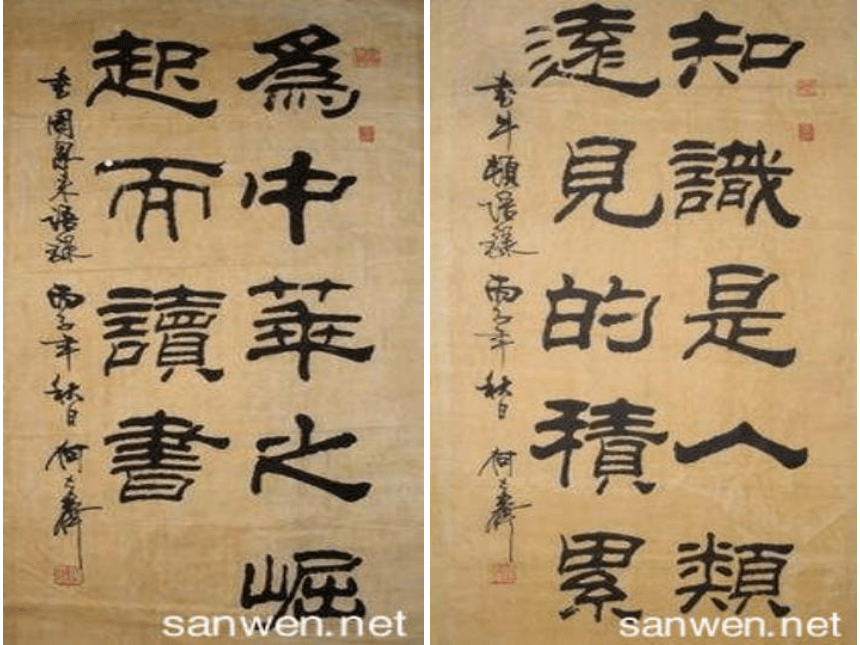 為中華之崛
起而讀書
書周恩來語錄 丙子年秋日 何
sanwen.net
知識是人類
遠見的積累
書牛頓語錄 丙子年秋日 何
sanwen.net